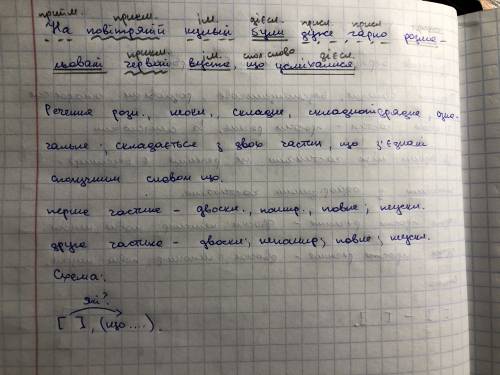 прийм. прикм. ім. дієсл. присл. присл
На повітряній кульці були дуже гарно розма-
прикм. ім. спол слово дієсл.
льовані червоні вуста, що усміхалися.
Речення розп., неокл, складне, складнопідрядне,
; складається з двох частин, що з'єднані
сполучним словом що.
перше частина - двоскл., пошир., повне; неускл.
друге частина - двоскл; непошир; повне; неускл.
Схема:
які?
[ ], (що....).